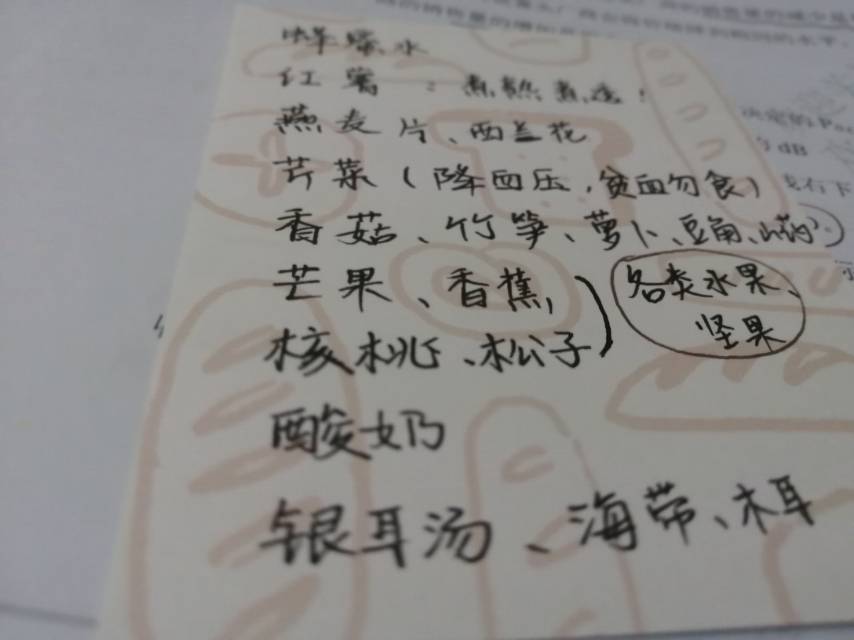 蜂蜜水
红薯：煮熟煮透！
燕麦片、西兰花
芹菜（降血压，贫血勿食）
香菇、竹笋、萝卜、豆角、山药
芒果、香蕉，
核桃、松子
各类水果、
坚果
酸奶
银耳汤、海带、木耳
决定的
dB